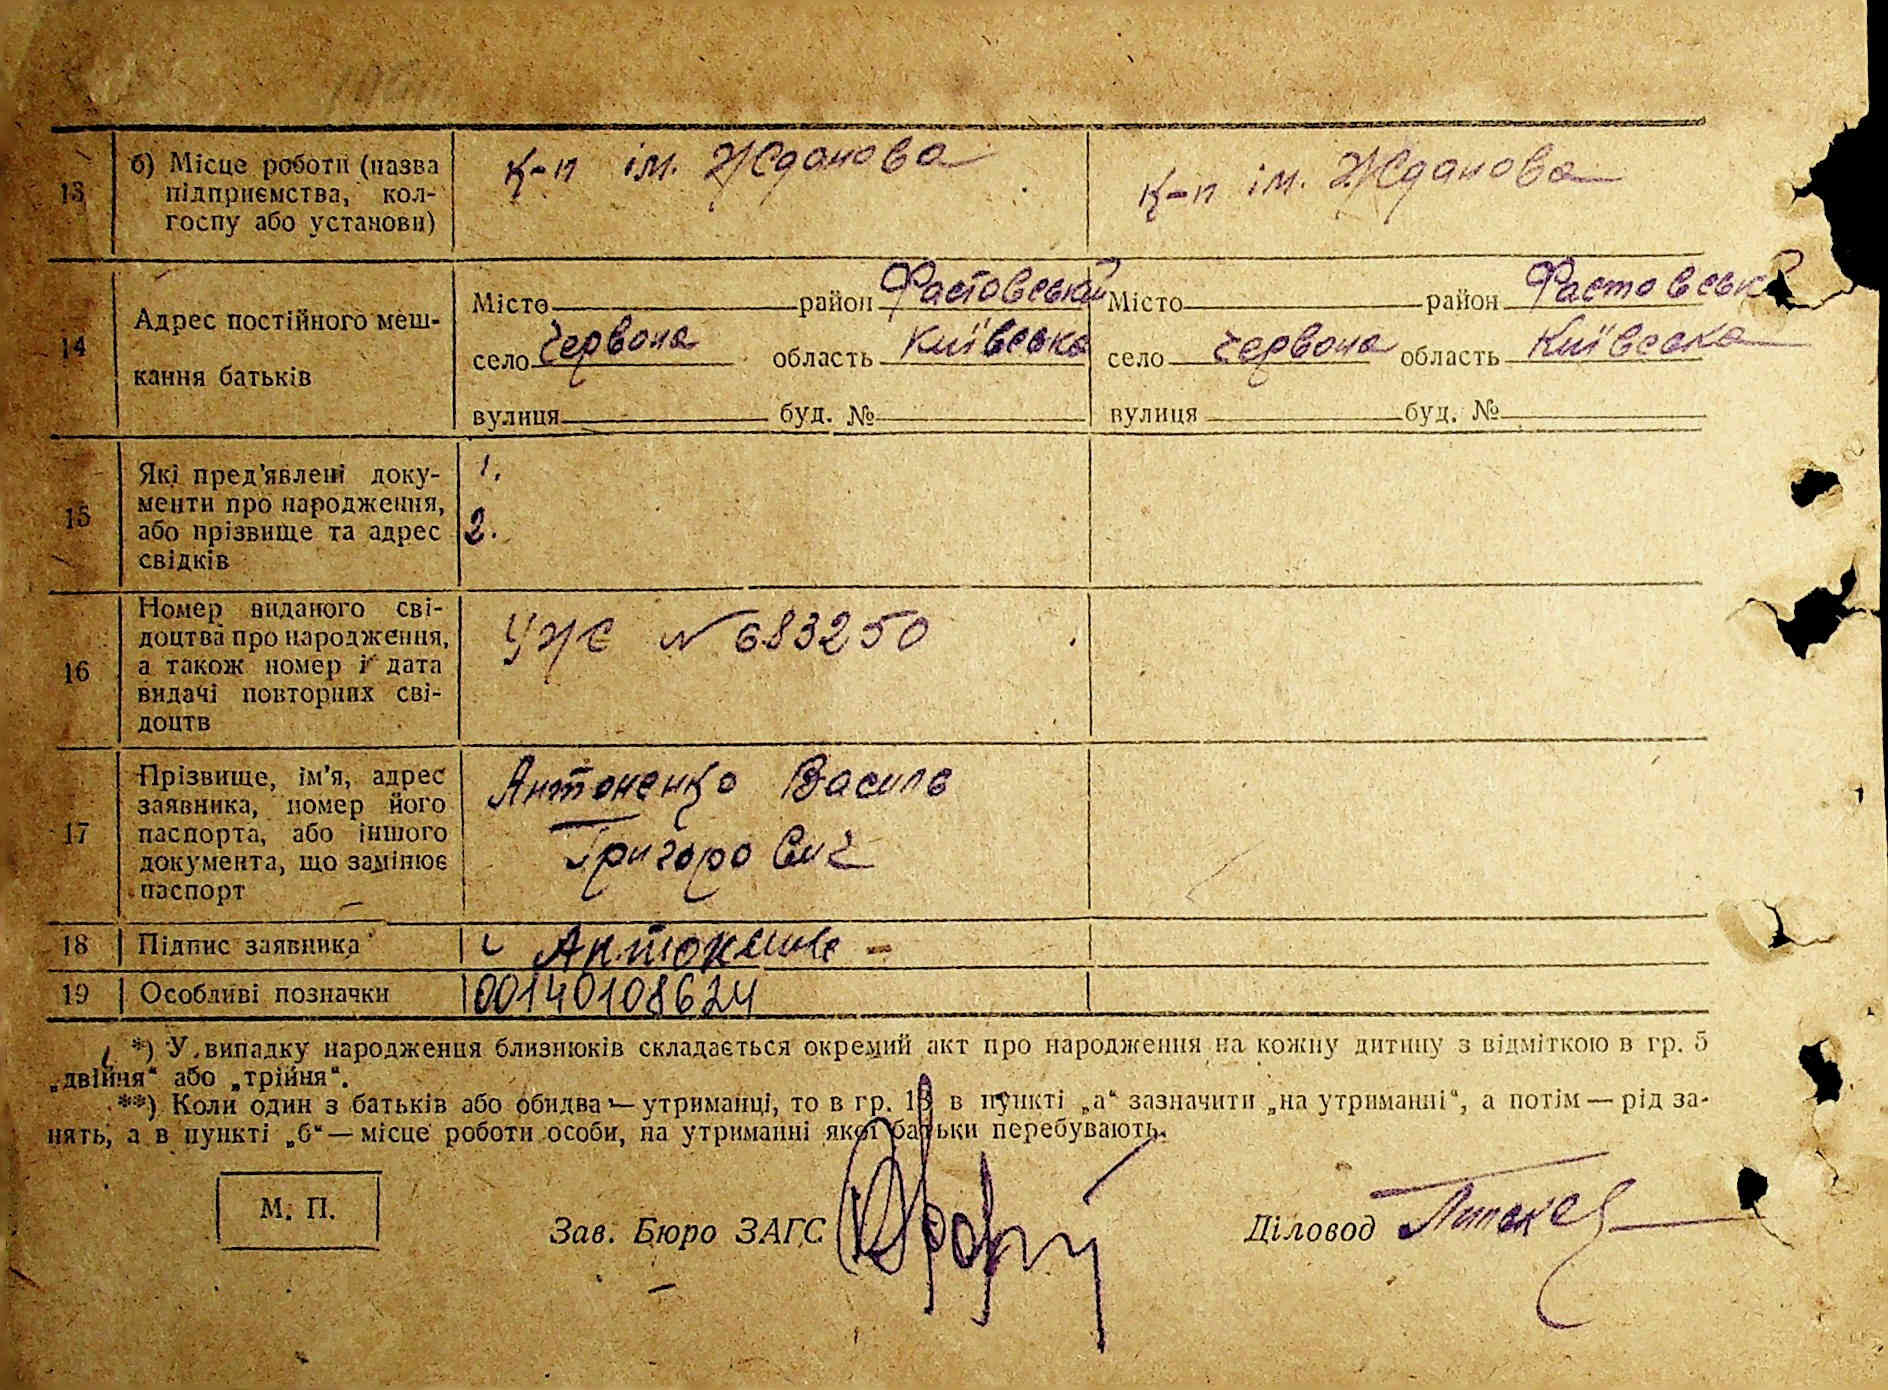 13 б) Місце роботи (назва підприємства, колгоспу або установи) к-п ім. Жданова к-п ім. Жданова
14 Адрес постійного меш-
кання батьків
Місто район Фастовський Місто район Фастовськ
село Червона область Київська село Червона область Київська
вулиця буд. № вулиця буд. №
15 Які пред'явлені доку-
менти про народження,
або прізвище та адрес
свідків
1.
2.
16 Номер виданого сві-
доцтва про народження,
а також номер і дата
видачі повторних сві-
доцтв
УЖЄ № 683250
17 Прізвище, ім'я, адрес
заявника, номер його
паспорта, або іншого
документа, що замінює
паспорт
Антоненко Василь
Григорович
18 Підпис заявника
19 Особливі позначки 00140108624
*) У випадку народження близнюків складається окремий акт про народження на кожну дитину з відміткою в гр. 5
„двійня“ або „трійня“.
**) Коли один з батьків або обидва — утриманці, то в гр. 13 в пункті „а“ зазначити „на утриманні“, а потім — рід за-
нять, а в пункті „б“ — місце роботи особи, на утриманні якої батьки перебувають.
М. П.
Зав. Бюро ЗАГС Діловод